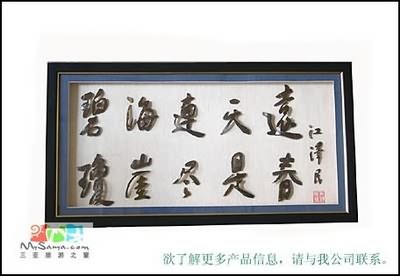 碧海連天遠
瓊崖尽是春
江泽民
MySanya.com
三亚旅游之窗
欲了解更多产品信息，请与我公司联系。